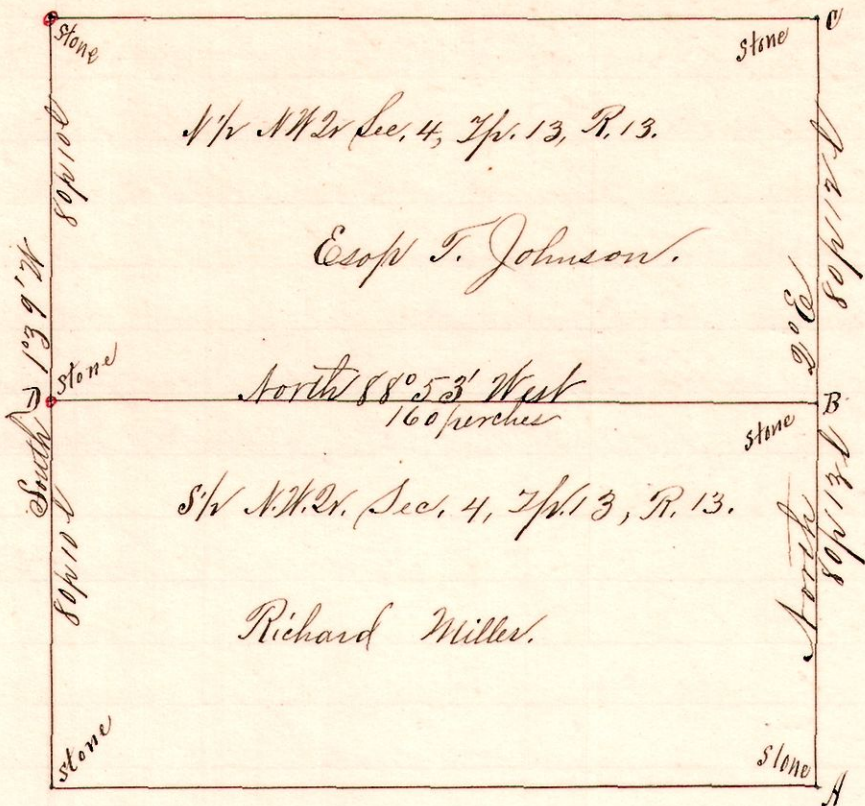 stone
stone C
N½ N W Qr Sec. 4, Tp. 13, R. 13.
Esop T. Johnson.
80p10l
80p12l
South 1°39' W
North 2° E
D stone
North 88°53' West
160 perches
stone B
S½ N.W. Qr. Sec. 4, Tp. 13, R. 13.
80p10l
80p13l
Richard Miller.
stone
stone A